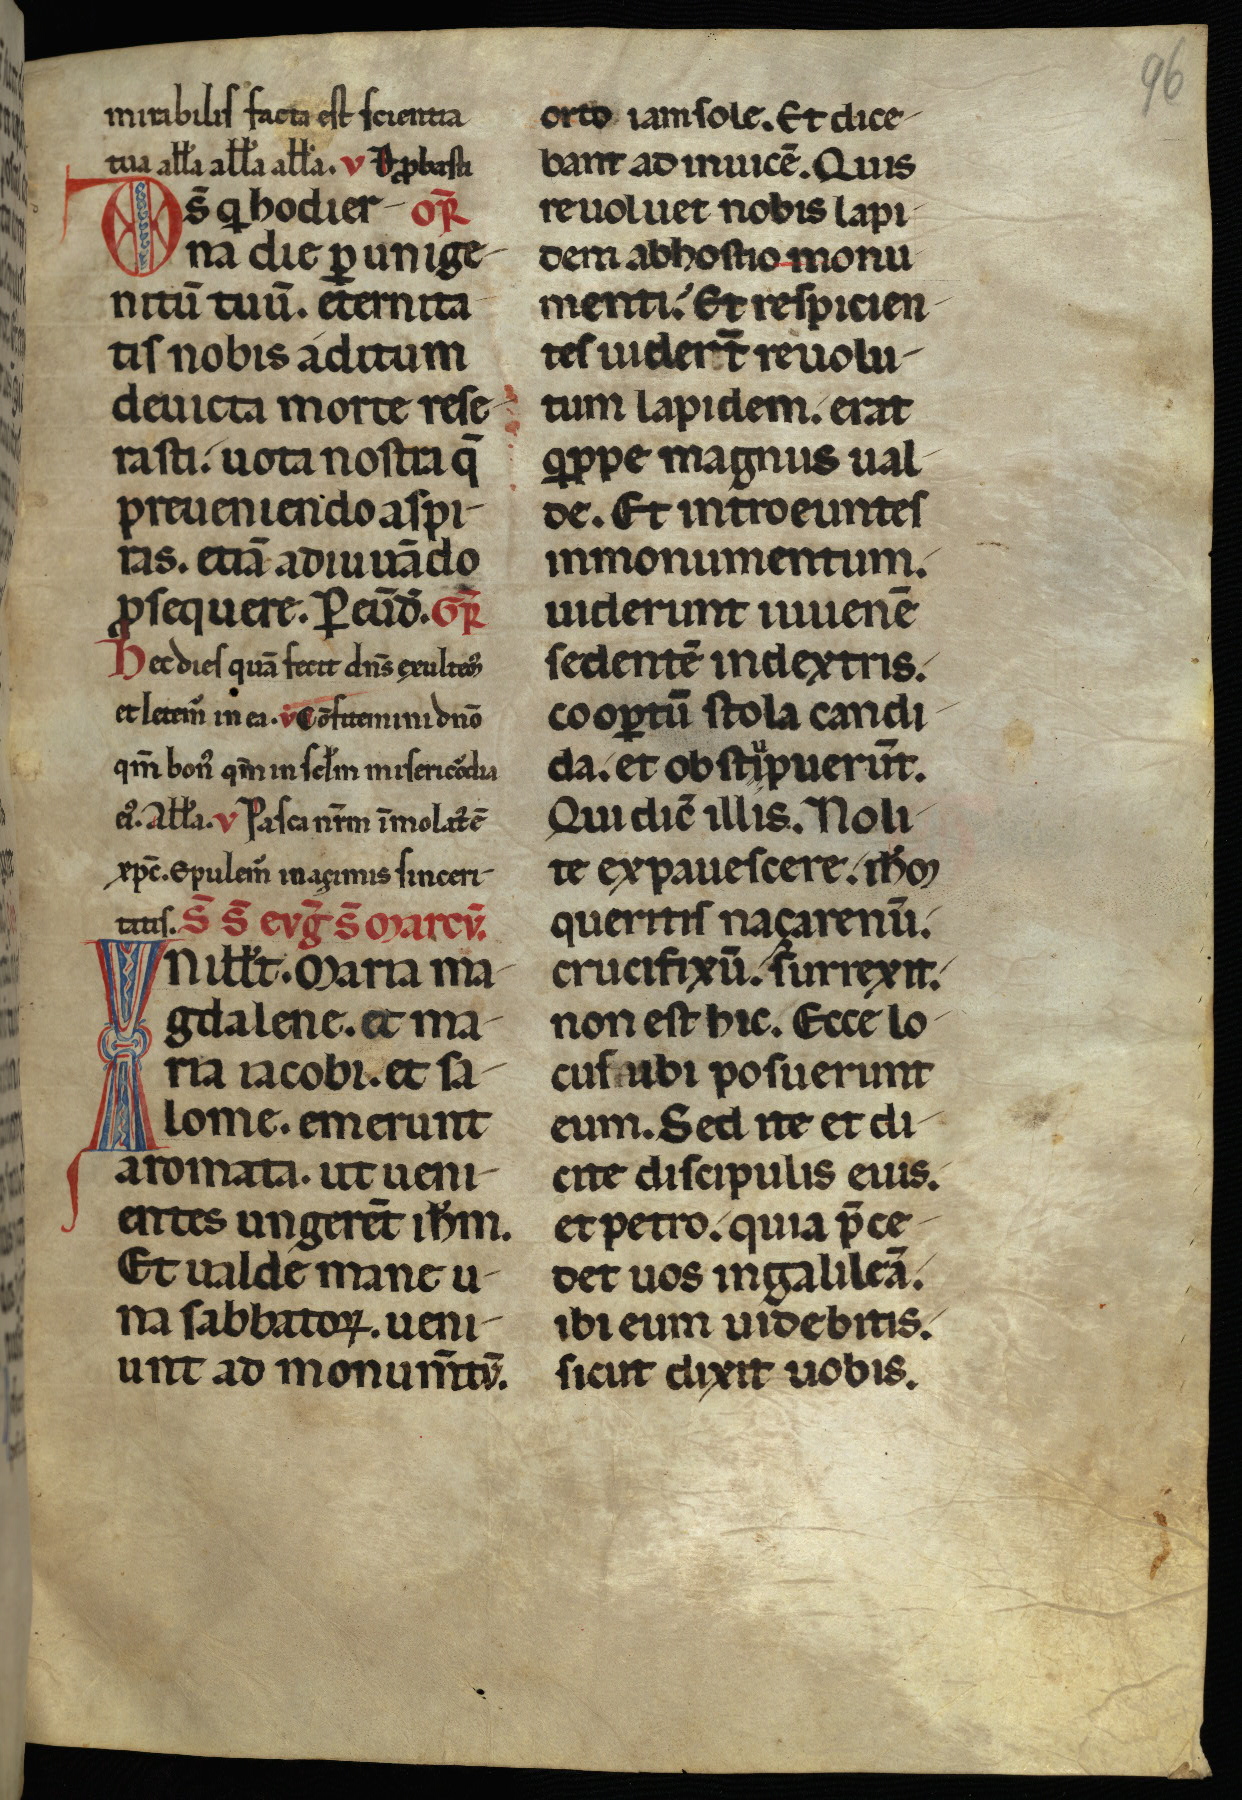 96
mirabilis facta est scientia
tua all'a all'a all'a. v D ꝓbasti
Ds̄ q̇ hodier- or̄
na die ꝑ unige-
nitū tuū. eternita-
tis nobis áditum
deuicta morte rese-
rasti. uota nostra q̄
preueniendo aspi-
ras. etiā adiuuādo
ꝓsequere. Ꝑ eūd̄. Gr̄
Hec dies quā fecit dn̄s exultem᷒
et letem᷒ in ea. v Cōfitemini dnō
qm̄ bon᷒ qm̄ in sclm̄ misericōdia
ei᷒. All'a. v Pasca nr̄m īmolat᷒ ē
xp̄c. Epulem᷒ in açimis sinceri-
titis. S̄ S̄ evḡ s̄ Marcv̄.
IN ill't. Maria ma-
gdalene. et ma-
ria iacobi. et sa-
lome. emerunt
aromata. ut ueni-
entes ungerēt ih̄m.
Et ualde mane u-
na sabbatoꝝ. ueni-
unt ad monum̄tv̄.
orto iam sole. Et dice-
bant ad inuicē. Quis
reuoluet nobis lapi-
dem abhostio monu
menti. Et respicien-
tes uidert̄ reuolu-
tum lapidem. erat
q̇ppe magnus ual-
de. Et introeuntes
inmonumentum.
uiderunt iuuenē
sedentē indextris.
cooꝑtū stola candi-
da. et obstupuerūt.
Qui dic̄ illis. Noli-
te expauescere. ih̄m
queritis naçarenū.
crucifixū. surrexit.
non est hic. Ecce lo-
cus ubi posuerunt
eum. Sed ite et di-
cite discipulis eius.
et petro. quia p̄ce-
det uos ingalileā.
ibi eum uidebitis.
sicut dixit uobis.